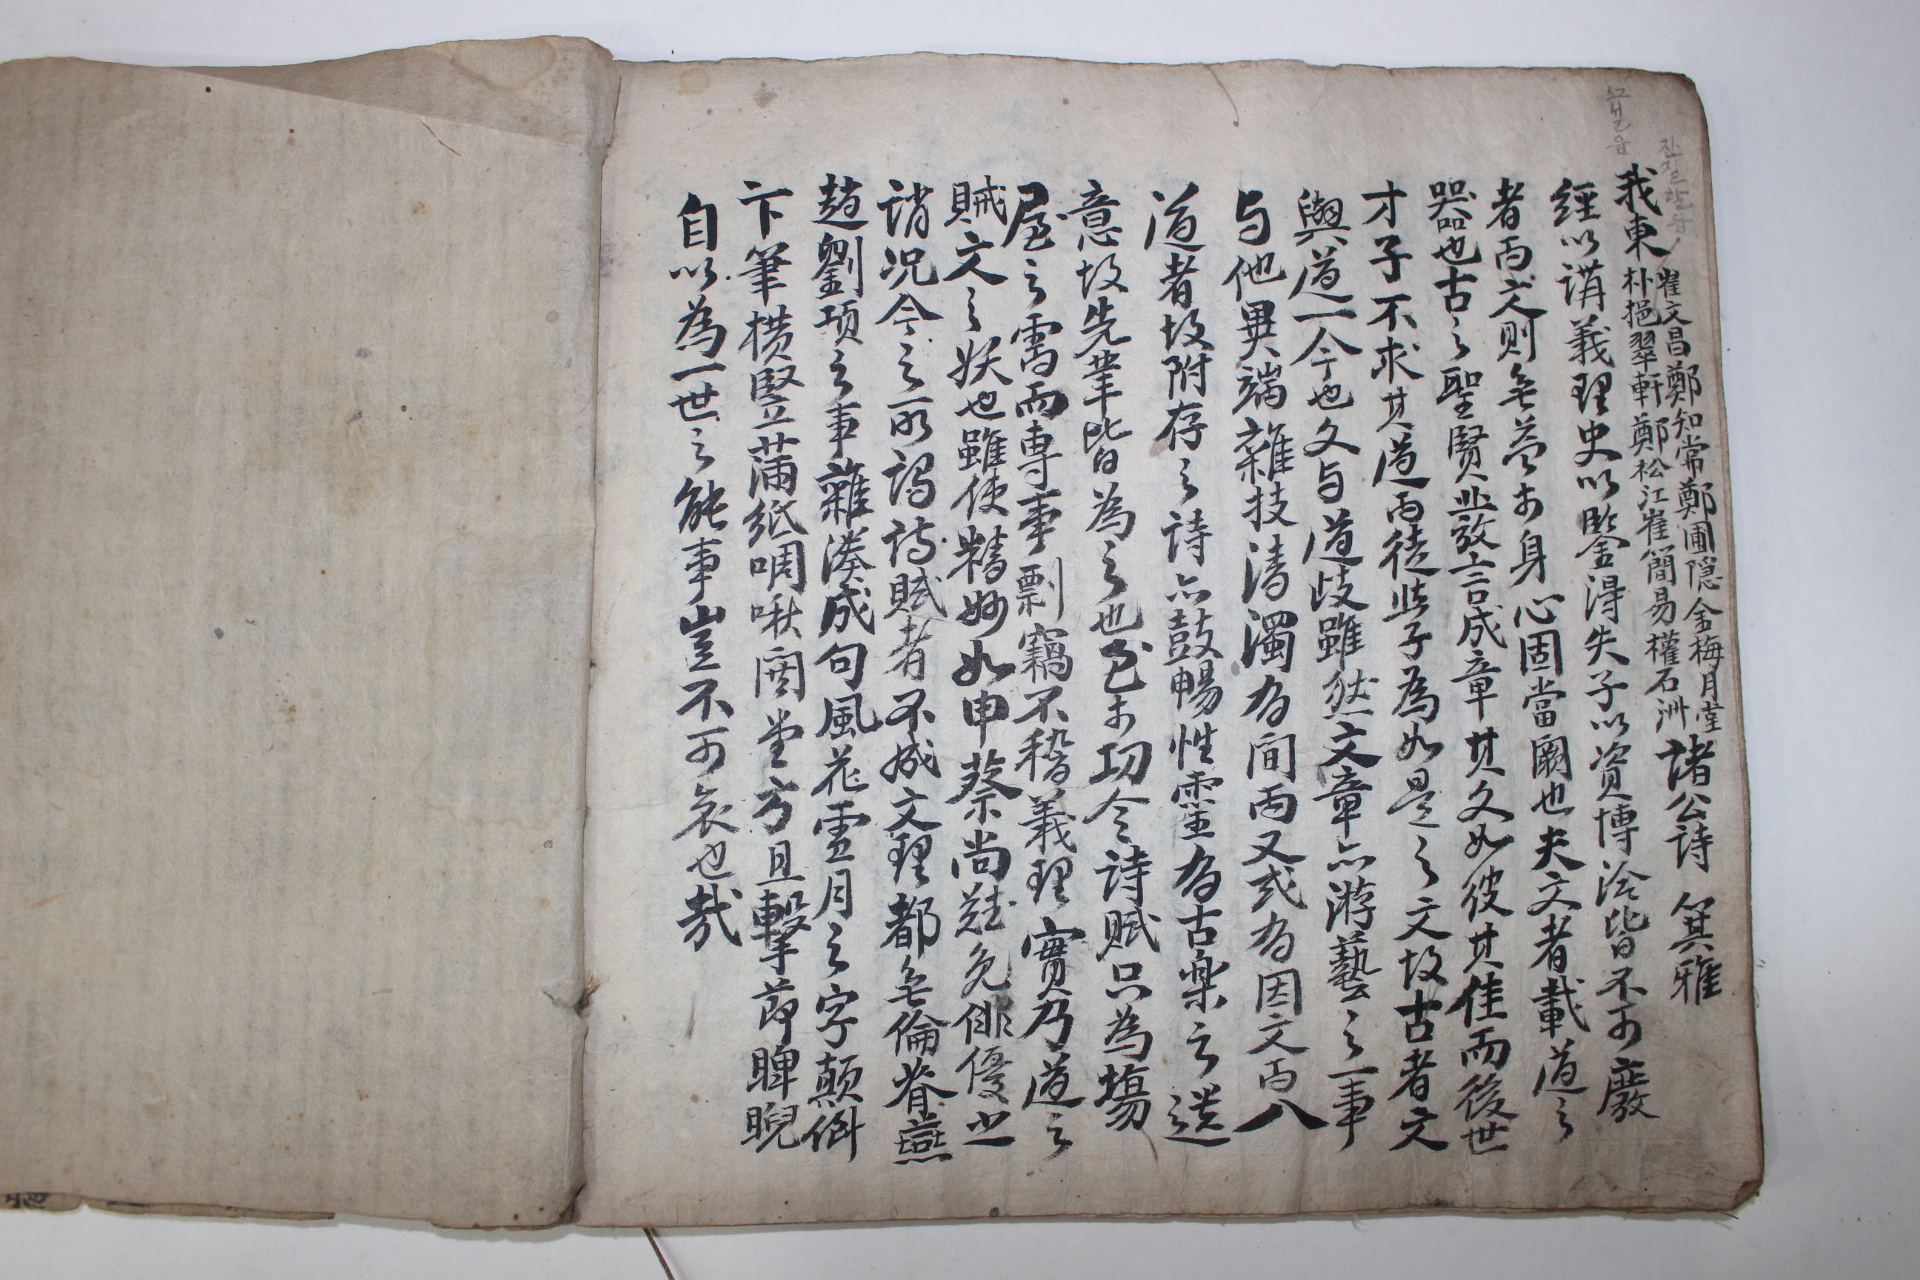 我東 崔文昌鄭知常鄭圃隱金梅月堂 朴挹翠軒鄭松江崔簡易權石洲 諸公詩 箕雅
經以講義理史以鑒得失子以資博洽皆不可廢
者而文則無益於身心固當爾也夫文者載道之
器也古之聖賢業敎言成章其文如彼其佳而後世
才子不求其道而徒 子爲如是之文故古者文
與道一今也文与道歧雖然文章亦游藝之一事
与他異端雜技淸濁有間而又或有因文而入
道者故附存之詩亦鼓暢性靈有古樂之遺
意故先輩皆爲之也至於功令詩賦只爲場
屋之需而專事剽竊不稽義理實乃道之
賊文之妖也雖使精妙如申蔡尚難免俳優之
誚况今之所謂詩賦者不成文理都無倫脊燕
趙劉項之事雜湊成句風花雪月之字顚倒
下筆橫竪滿紙啁啾 堂方且擊節睥睨
自以爲一世之能事豈不可哀也哉